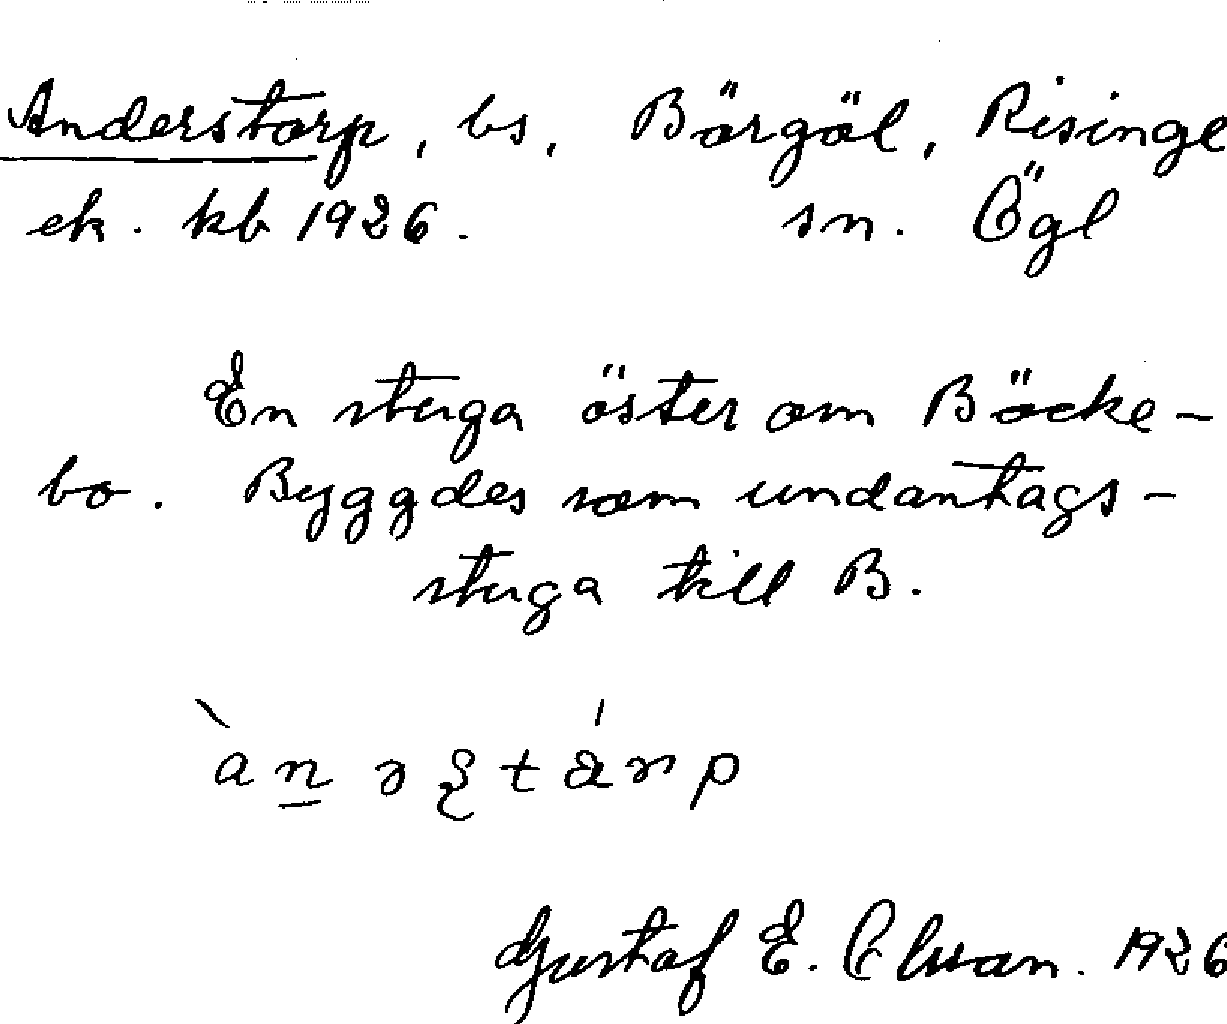 Anderstorp, bs, Börgöl, Risinge
ek. kb 1926. sn. Ögl
En stuga öster om Böcke-
bo. Byggdes som undantags-
stuga till B.
Gustaf E. Olsson. 1926